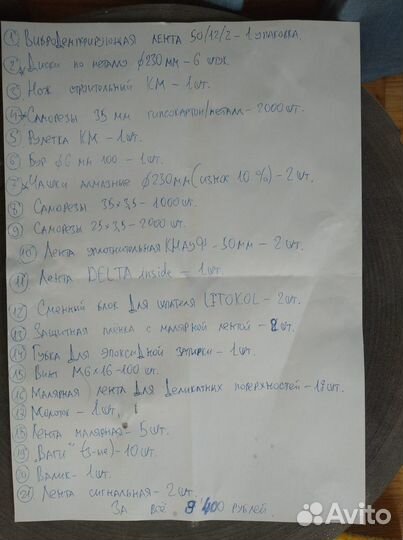 1 Вибродемпфирующая лента 50/12/2 - 1 упаковка.
2 Диски по металлу ф230мм - 6 штук
3 Нож строительный КМ - 1 шт.
4 Саморезы 35 мм гипсокартон/металл - 2000 шт.
5 Рулетка КМ - 1 шт.
6 Бур ф6 мм 100 - 1 шт.
7 Чашки алмазные ф230мм (износ 10%) - 2 шт.
8 Саморезы 35х3,5 - 1000 шт.
9 Саморезы 25х3,5 - 2000 шт.
10 Лента уплотнительная КНАУФ - 50мм - 2 шт.
11 Лента DELTA inside - 1 шт.
12 Сменный блок для шпателя LITOKOL - 2 шт.
13 Защитная плёнка с малярной лентой - 2 шт.
14 Губка для эпоксидной затирки - 1 шт.
15 Винт М6х16 - 100 шт.
16 Малярная лента для деликатных поверхностей - 17 шт.
17 Молоток - 1 шт.
18 Лента малярная - 5 шт.
19 "Ваги" - 10 шт.
20 Валик - 1 шт.
21 Лента сигнальная - 2 шт.
За всё 8'400 рублей.
Avito